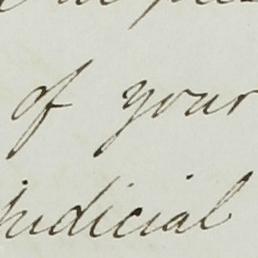 of your
judicial